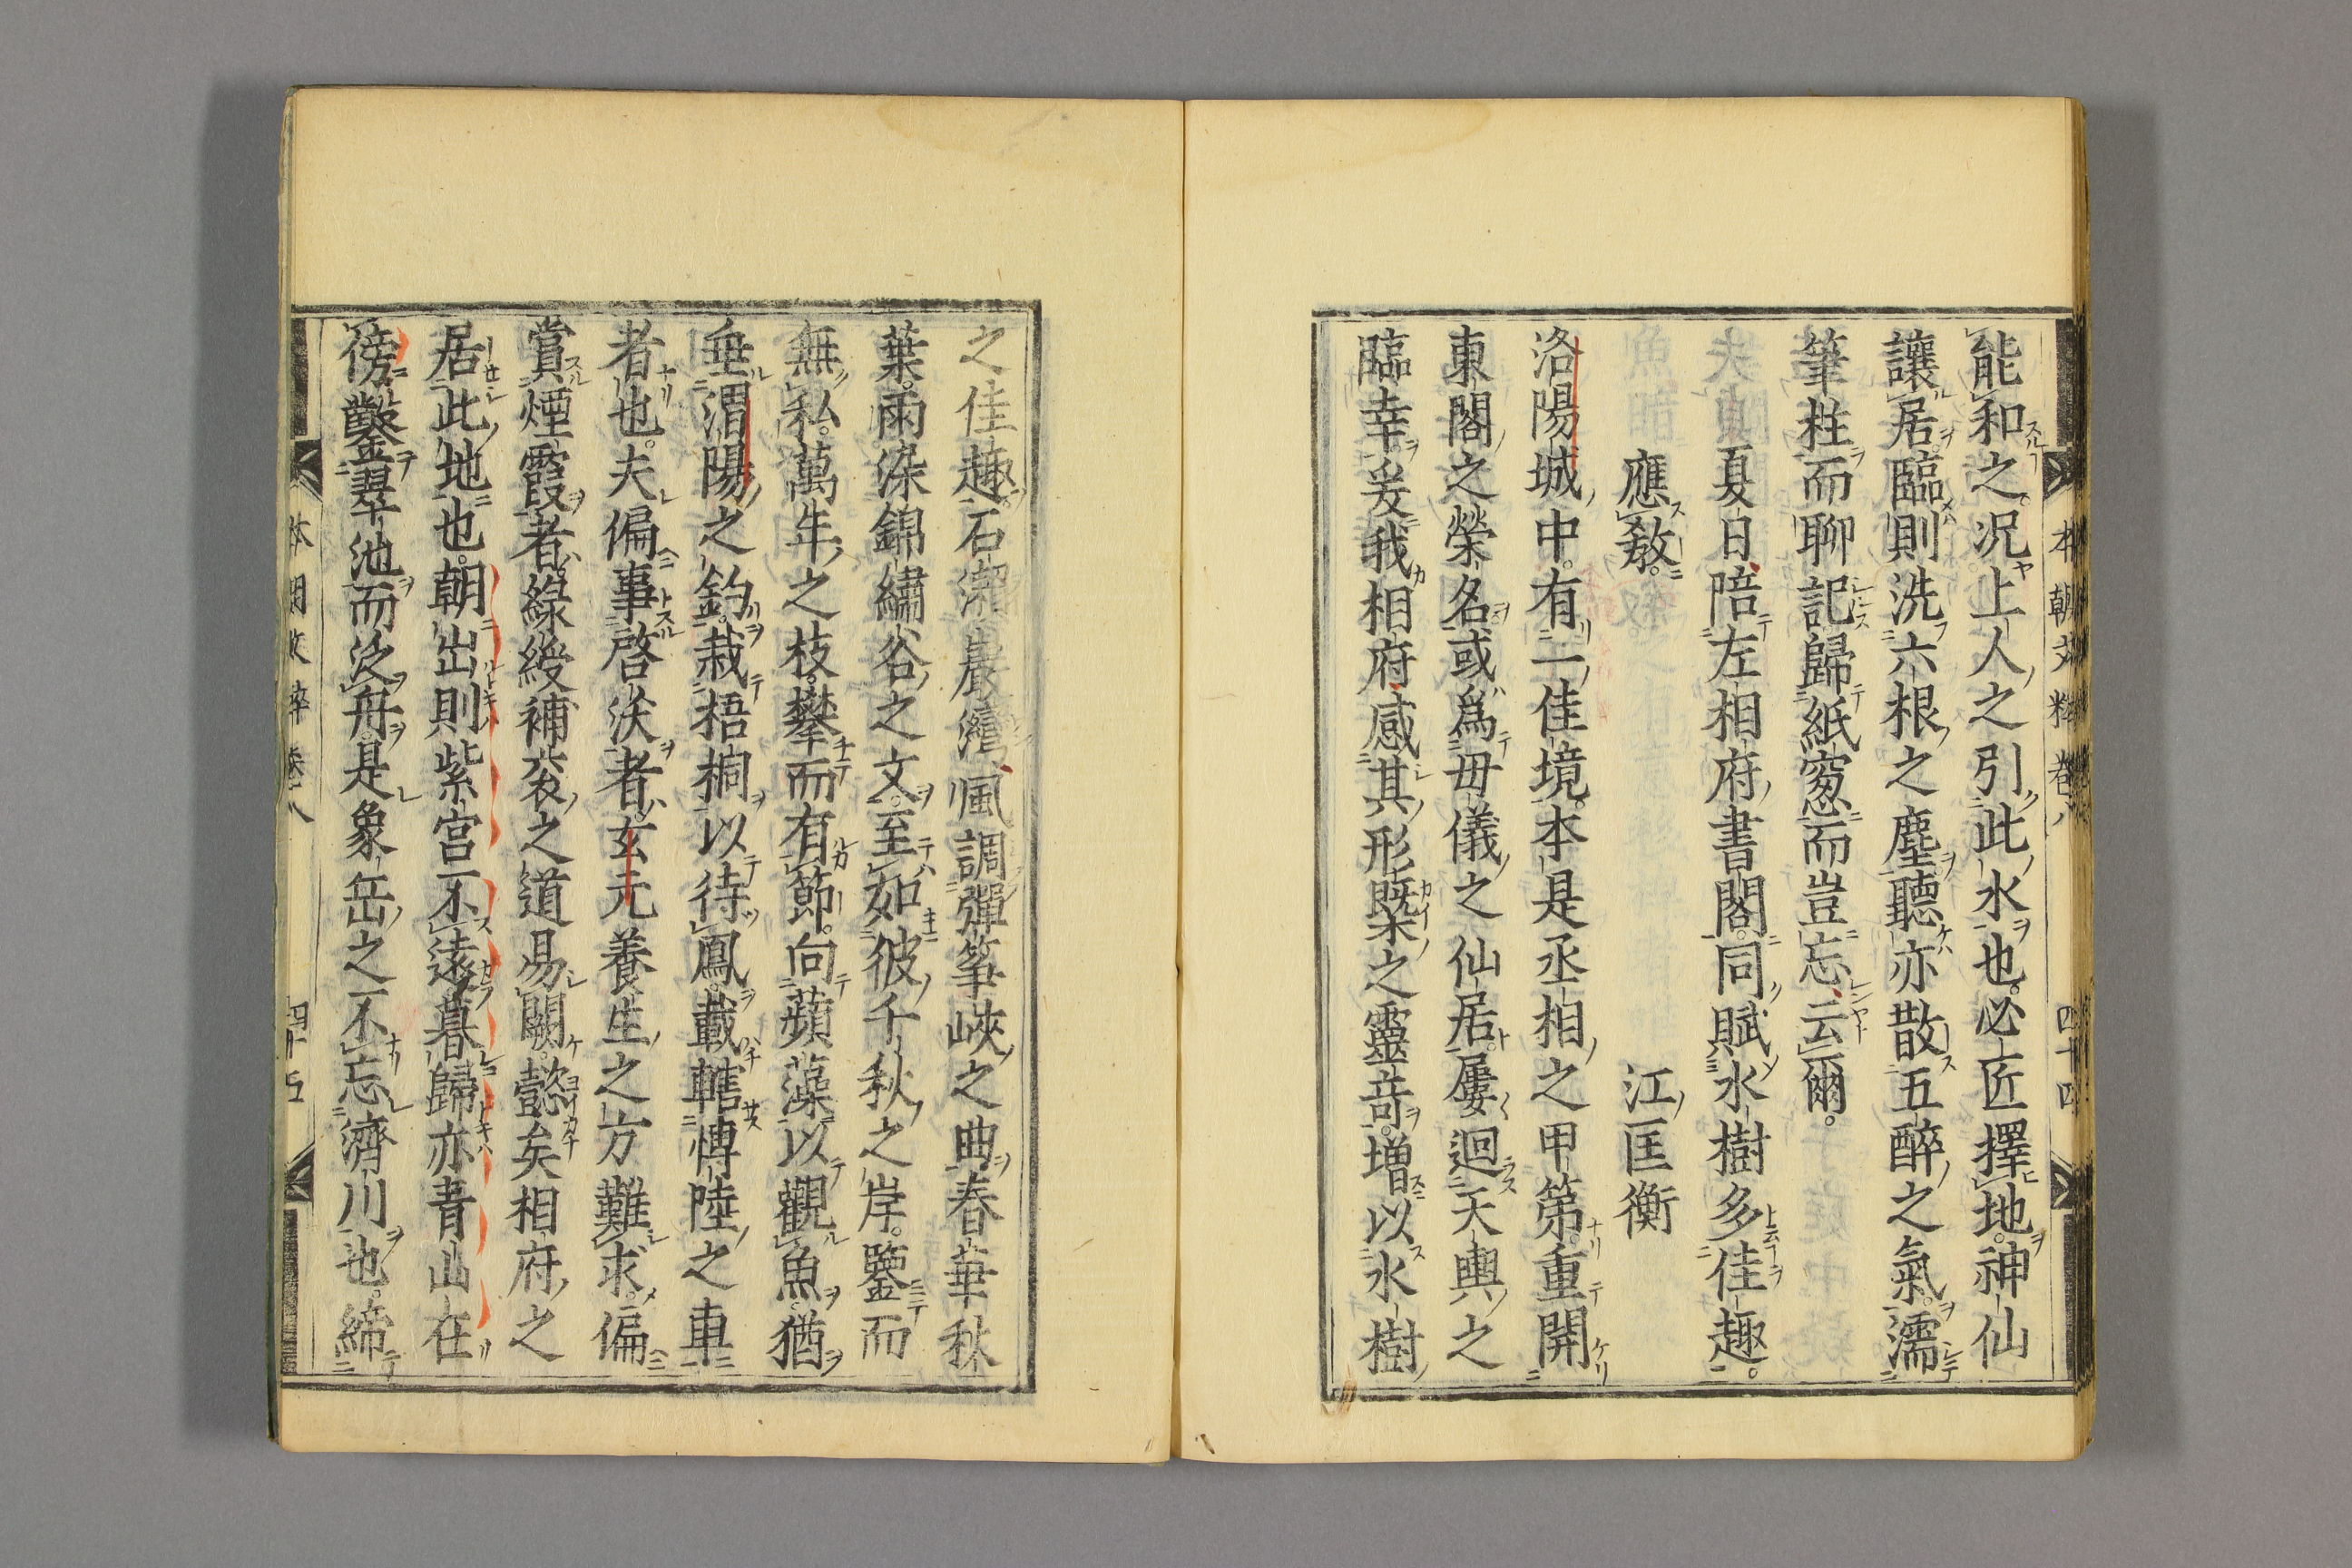 能和之。況上人之引此水也。必匠擇地。神仙
讓居臨則洗六根之塵聽亦散五醉之氣。濡
筆柱而聊記歸紙窓而豈忘云爾。
夏日陪左相府書閣。同賦水樹多佳趣。
應教。 江匡衡
洛陽城中。有一佳境。本是丞相之甲第。重開
東閣之榮名。或爲毋儀之仙居。屢廻天輿之
臨幸。爰我相府。感其形槩之靈竒。增以水樹
本朝文粹卷八 四十四
之佳趣。石潔岸灣。風調彈箏峽之曲。春華秋
葉。雨染錦繡谷之文。至如彼千秋之岸。鑒而
無私。萬年之枝。攀而有節。向蘋藻以觀魚。猶
垂渭陽之釣。栽梧桐以待鳳。載轄慱陸之車
者也。夫偏事啓沃者。玄元養生之方難求。偏
賞煙霞者。綠綬補衮之道易闕。懿矣相府之
居此地也。朝出則紫宮不遠。暮歸亦青山在
傍。鑿翠池而泛舟。是象岳之不忘濟川也。締
本朝文粹卷八 四十五